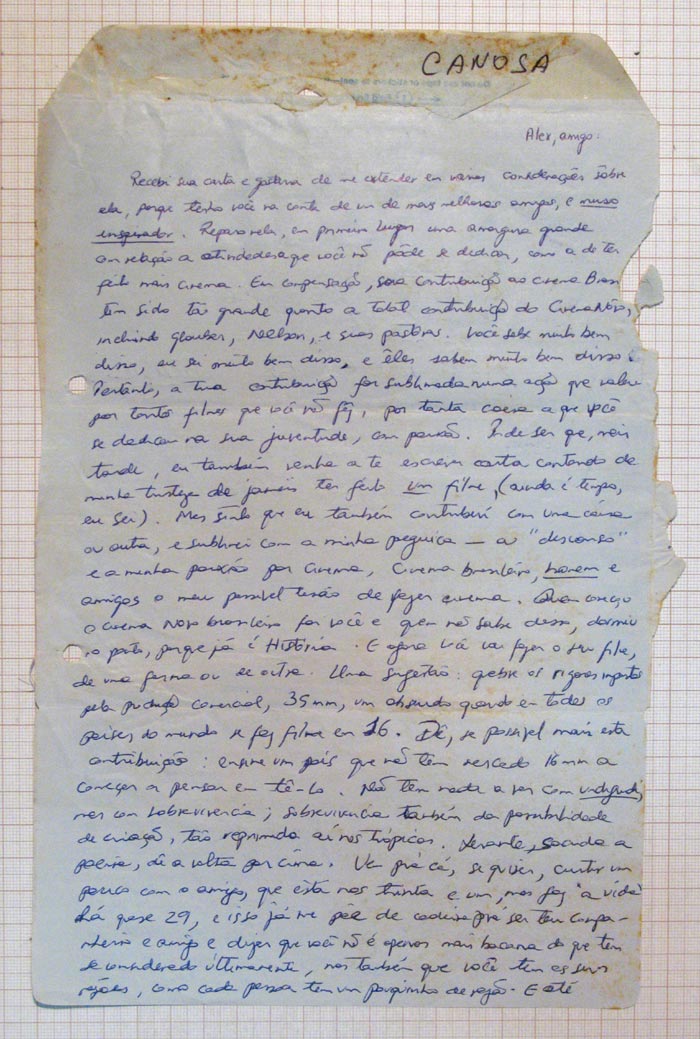 CANOSA
Alex, amigo:
Recebi sua carta e gostaria de me extender em várias considerações sôbre
ela, porque tenho você na conta de um de meus melhores amigos, e muso
inspirador. Reparo nela, em primeiro lugar uma amargura grande
em relação a atividades a que você não pôde se dedicar, como a de ter
feito mais cinema. Em compensação, sua contribuição ao cinema Bras
tem sido tão grande quanto a total contribuição do Cinema Nôvo,
incluindo Glauber, Nelson, e suas pastoras. Você sabe muito bem
disso, eu sei muito bem disso, e êles sabem muito bem disso.
Portanto, a tua contribuição foi sublimada numa ação que valeu
por tantos filmes que você não fêz, por tanta coisa a que você
se dedicou na sua juventude, com paixão. Pode ser que, mais
tarde, eu também venha a te escrever carta contando de
minha tristeza de jamais ter feito um filme, (ainda é tempo,
eu sei). Mas sinto que eu também contribuí com uma coisa
ou outra, e sublimei com a minha preguiça — ou "descanso"
e a minha paixão por cinema, cinema brasileiro, homem e
amigos o meu possível tesão de fazer cinema. Quem começou
o cinema Novo brasileiro foi você e quem não sabe disso, dormiu
no ponto, porque já é História. E agora você vai fazer o seu filme,
de uma forma ou de outra. Uma sugestão: quebre os rigores impostos
pela produção comercial, 35 mm, um absurdo quando em todos os
países do mundo se faz filme em 16. Dê, se possível mais esta
contribuição: ensine um país que não tem mercado 16 mm a
começar a pensar em tê-lo. Não tem nada a ver com undigrudi,
mas com sobrevivencia; sobrevivencia também da possibilidade
de criação, tão reprimida aí nos trópicos. Levante, sacuda a
poeira, dê a volta por cima. Vem prá cá, se quiser, curtir um
pouco com o amigo, que está nos trinta e um, mas faz "a vida"
há quase 29, e isso já me põe de cadeira prá ser teu compa-
nheiro e amigo e dizer que você não é apenas mais bacana do que tem
se considerado últimamente, mas também que você tem as suas
razões, como cada pessoa tem um pouquinho de razão. E até